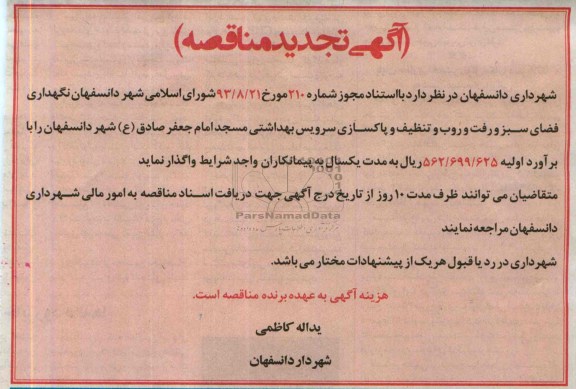 (آگهی تجدید مناقصه)
شهرداری دانسفهان در نظر دارد با استناد مجوز شماره ۲۱۰ مورخ ۹۳/۸/۲۱ شورای اسلامی شهر دانسفهان نگهداری
فضای سبز و رفت و روب و تنظیف و پاکسازی سرویس بهداشتی مسجد امام جعفر صادق (ع) شهر دانسفهان را با
برآورد اولیه ۵۶۲/۶۹۹/۶۲۵ ریال به مدت یکسال به پیمانکاران واجد شرایط واگذار نماید
متقاضیان می توانند ظرف مدت ۱۰ روز از تاریخ درج آگهی جهت دریافت اسناد مناقصه به امور مالی شهرداری
ParsNamadData
دانسفهان مراجعه نمایند
شهرداری در رد یا قبول هر یک از پیشنهادات مختار می باشد.
هزینه آگهی به عهده برنده مناقصه است.
یداله کاظمی
شهردار دانسفهان